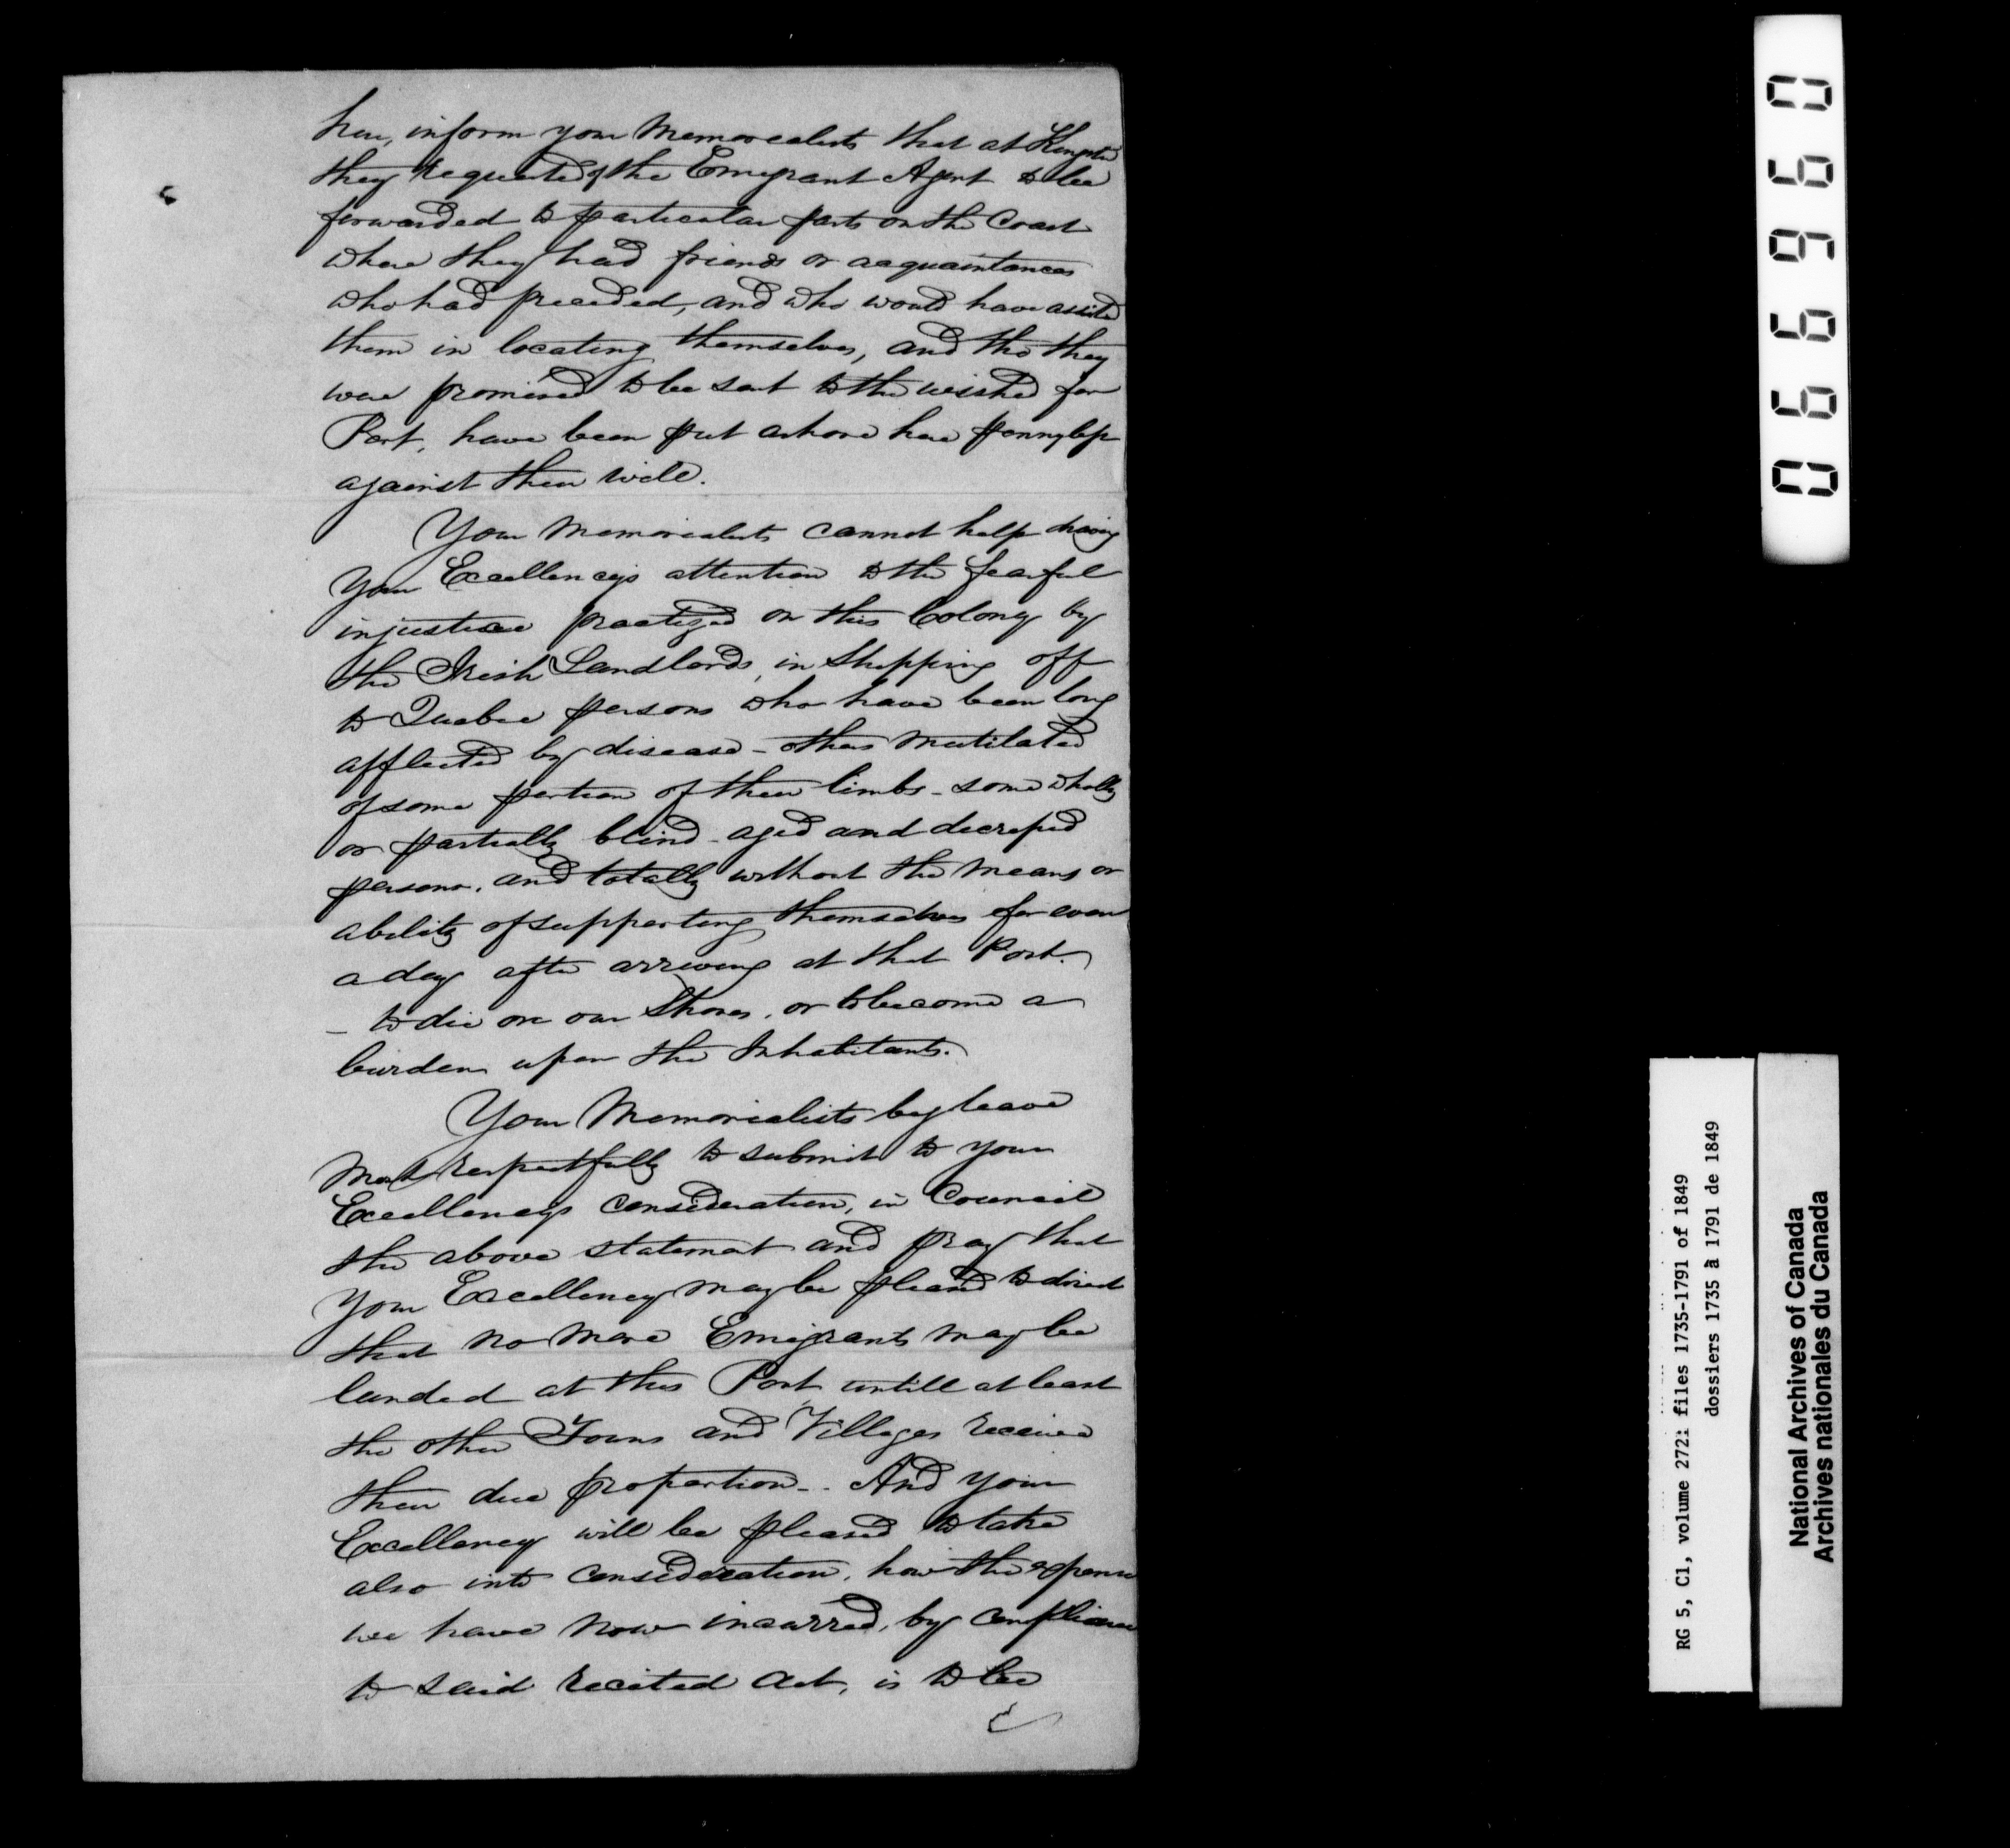 here, inform your Memorialists that at Kingston
they requested of the Emigrant Agent to be
forwarded to particular parts on the Coast
where they had friends or acquaintances
who had preceded, and who would have assisted
them in locating themselves, and tho they
were promised to be sent to the wished for
Port, have been put ashore here pennyless
against their will.
Your Memorialists cannot help drawing
Your Excellencys attention to the fearful
injustice practized on this Colony by
the Irish Landlords, in Shipping off
to Quebec persons who have been long
afflicted by disease - others mutilated
of some portion of their limbs - some wholly
or partially blind - aged and decreped
persons, and totally without the means or
ability of supporting themselves for even
a day after arriving at that Port.
- to die on our Shores, or to become a
burden upon the Inhabitants.
Your Memorialists beg leave
Most respectfully to submit to your
Excellencys consideration, in Council
the above statement and pray that
Your Excellency may be pleased to direct
that no more Emigrants may be
landed at this Port untill at least
the other Towns and Villages receive
their due proportion - . And your
Excellency will be pleased to take
also into consideration, how the expense
we have now incurred, by compliance
to said recited Act, is to be
066960
RG 5, C1, volume 272: files 1735-1791 of 1849
dossiers 1735 à 1791 de 1849
National Archives of Canada
Archives nationales du Canada